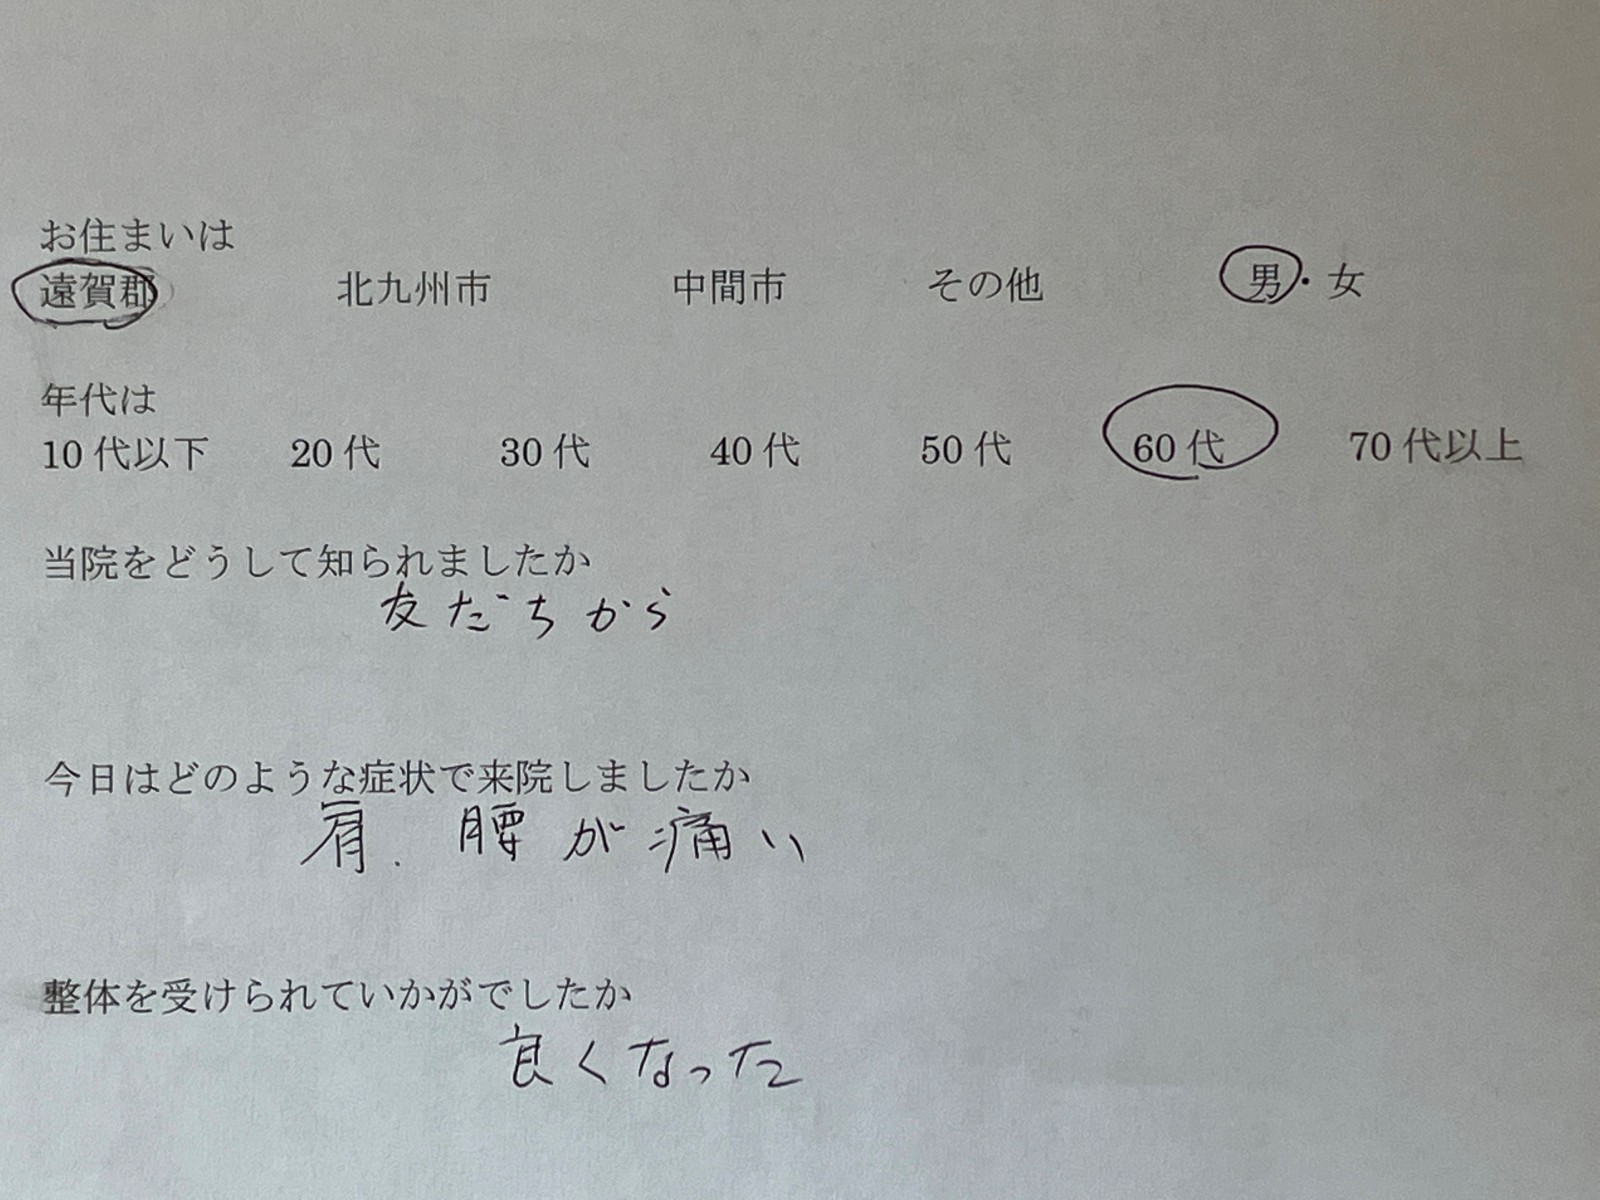 お住まいは
遠賀郡 北九州市 中間市 その他 男・女
年代は
10代以下 20代 30代 40代 50代 60代 70代以上
当院をどうして知られましたか
友だちから
今日はどのような症状で来院しましたか
肩.腰が痛い
整体を受けられていかがでしたか
良くなった